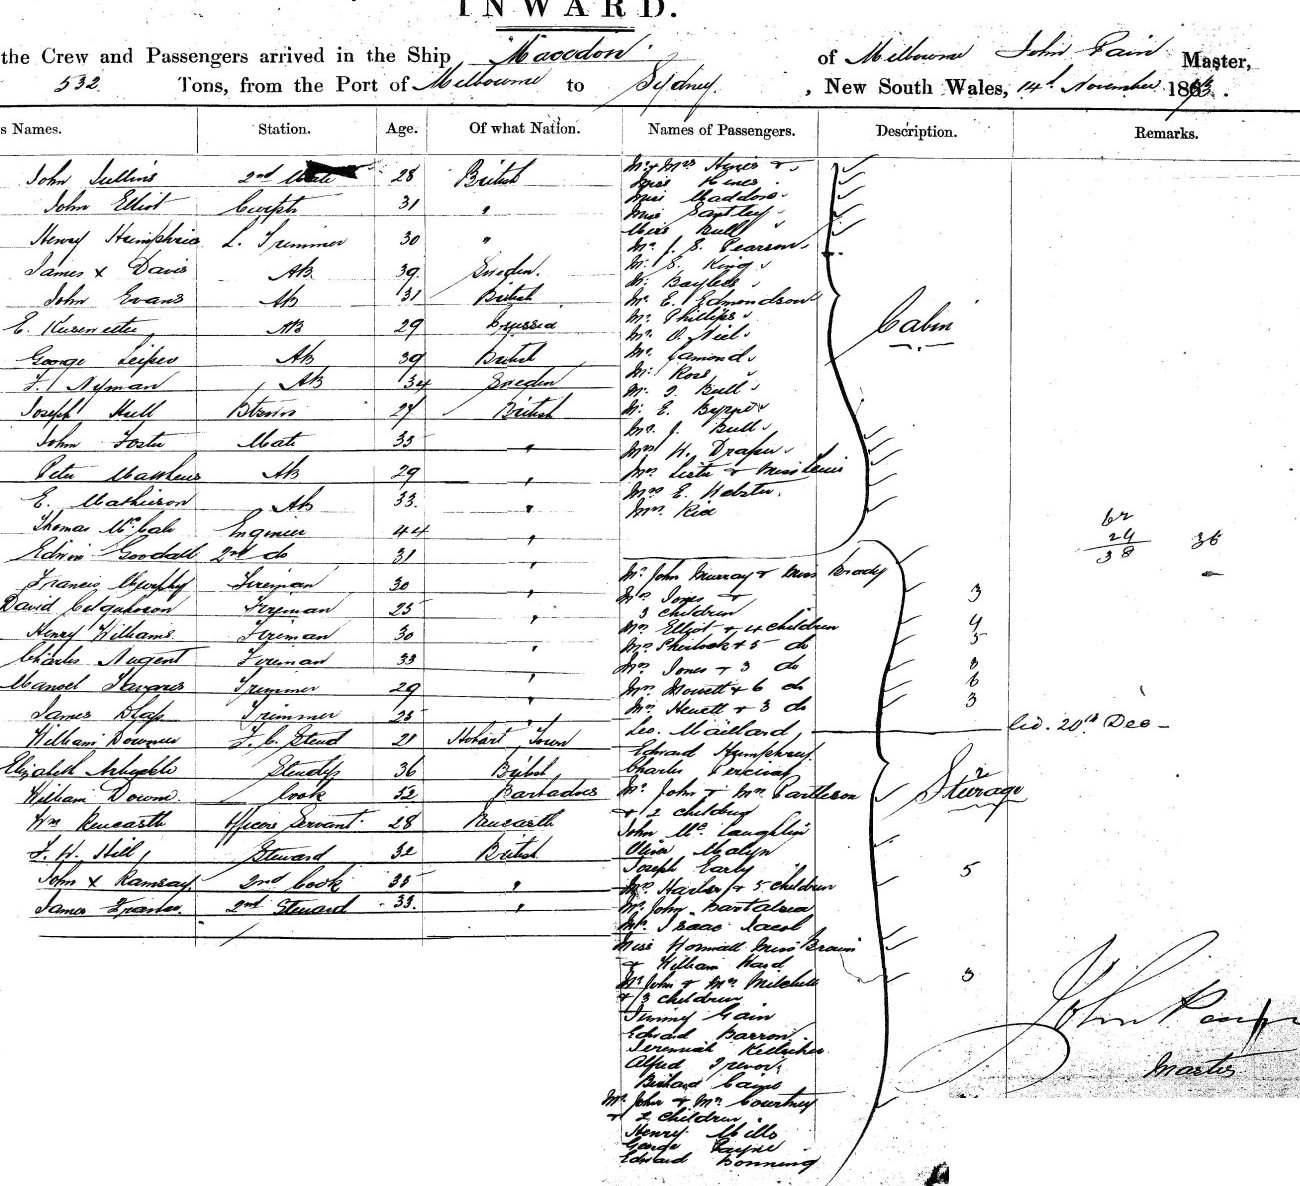 INWARD.
the Crew and Passengers arrived in the Ship Macedon of Melbourne John Pain Master,
532 Tons, from the Port of Melbourne to Sydney, New South Wales, 14th November 18
s Names. Station. Age. Of what Nation. Names of Passengers. Description. Remarks.
John Sullins 2nd Mate 28 British
John Elliot 31 "
Henry Humphries L. Trimmer 30 "
James x Davis AB 39 Sweden.
John Evans AB 31 British
E. AB 29 Russia
George Leiper AB 39 British
F. Nyman AB 34 Sweden
Joseph Hull 27 British
John Foster Mate 35 "
Peter Matthews AB 29 "
E. Mathieson AB 33 "
Thomas McCab Enginier 44 "
Edwin Goodall 2nd do 31
Francis Murphy Fireman 30 "
David Fireman 25 "
Henry Williams Fireman 30
Charles Nugent Fireman 33 "
Manoel Tavares Trimmer 29 "
James Trimmer 25 "
William Downer F. C. Steud 21 Hobart Town
Elizabeth Stewdss 36 British
William Down Cook 52 Barbadoes
Wm Officers Servant 28
F. W. Hill Steward 32 British
John x Ramsay 2nd Cook 35 "
James Fraser. 2nd Steward 33. "
Mr & Mrs Hines &
Miss Hines
Miss Maddox
Miss
Miss Bull
Mr J. E. Pearson
Mr E. King
Mr Baylees
Mr E. Edmondson
Mr Phillips
Mr O. Niel
Mr Lamond
Mr Ross
Mr T. Bull
Mr E.
Mr J. Bull
Mrs W. Draper
Mrs Lister & Miss Lewis
Mrs E. Webster
Mrs Rid
Cabin
62
24
38 36
Mr John Murray & Miss Brady
Mrs Jones &
3 children 3
Mrs Elliot & 4 children 4
Mrs Sherlock & 5 do 5
Mrs Jones & 3 do 3
Mrs Mowett & 6 do 6
Mrs Hewett & 3 do 3
Geo. Maillard 20th Dec
Edward Humphrey
Charles Percival
Mr John & Mrs Pattleson 2
& 2 children Steerage
John McLaughlin
Oliver Malyn
Joseph Early
Mrs Harber & 5 children 5
Mr John
Mr Isaac Jacob
Miss Miss Brown
& William Ward
Mr John & Mrs Mitchell
& 3 children 3
Jimmy Gain
Edward Barron
Jeremiah Kelleher
Alfred Trevor
Richard
Mr John & Mrs Courtney
& 2 children
Henry Mills
George Payne
Edward Bonning
John Pain
Master